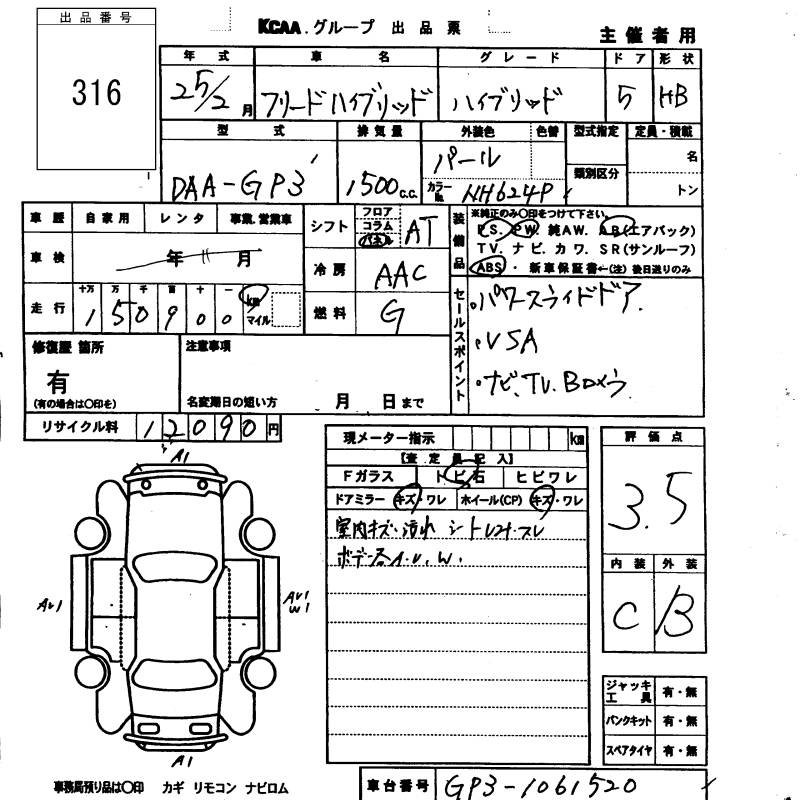 出品番号
316
KCAA.グループ 出品票
主催者用
年式 車名 グレード ドア 形状
25/2月 フリードハイブリッド ハイブリッド 5 HB
型式 排気量 外装色 色替 型式指定 定員・積載
DAA-GP3 1500c.c. パール 類別区分 名
カラーNo. NH624P トン
車歴 自家用 レンタ 事業.営業車
シフト フロア コラム パネル AT
装備品
※純正のみ〇印をつけて下さい。
P.S. P.W. 純AW. A.B(エアバック)
TV. ナビ. カワ. SR(サンルーフ)
ABS・ 新車保証書←(注) 後日送りのみ
車検 年 月
冷房 AAC
走行 十万 万 千 百 十 一
150900 km マイル
燃料 G
セールスポイント
・パワースライドドア.
・VSA
・ナビ、TV.Bカメラ
修復歴 箇所
有
(有の場合は〇印を)
注意事項
名変期日の短い方 月 日まで
リサイクル料 12090円
現メーター指示 km
【査定員記入】
Fガラス トビ石 ヒビワレ
ドアミラー キズ・ワレ ホイール(CP) キズ・ワレ
室内キズ・汚れ シートコゲ・スレ
ボデー各A.U.W.
評価点
3.5
内装 外装
C B
A1
AU1
AU1
W1
A1
ジャッキ工具 有・無
パンクキット 有・無
スペアタイヤ 有・無
事務局預り品は〇印 カギ リモコン ナビロム
車台番号 GP3-1061520